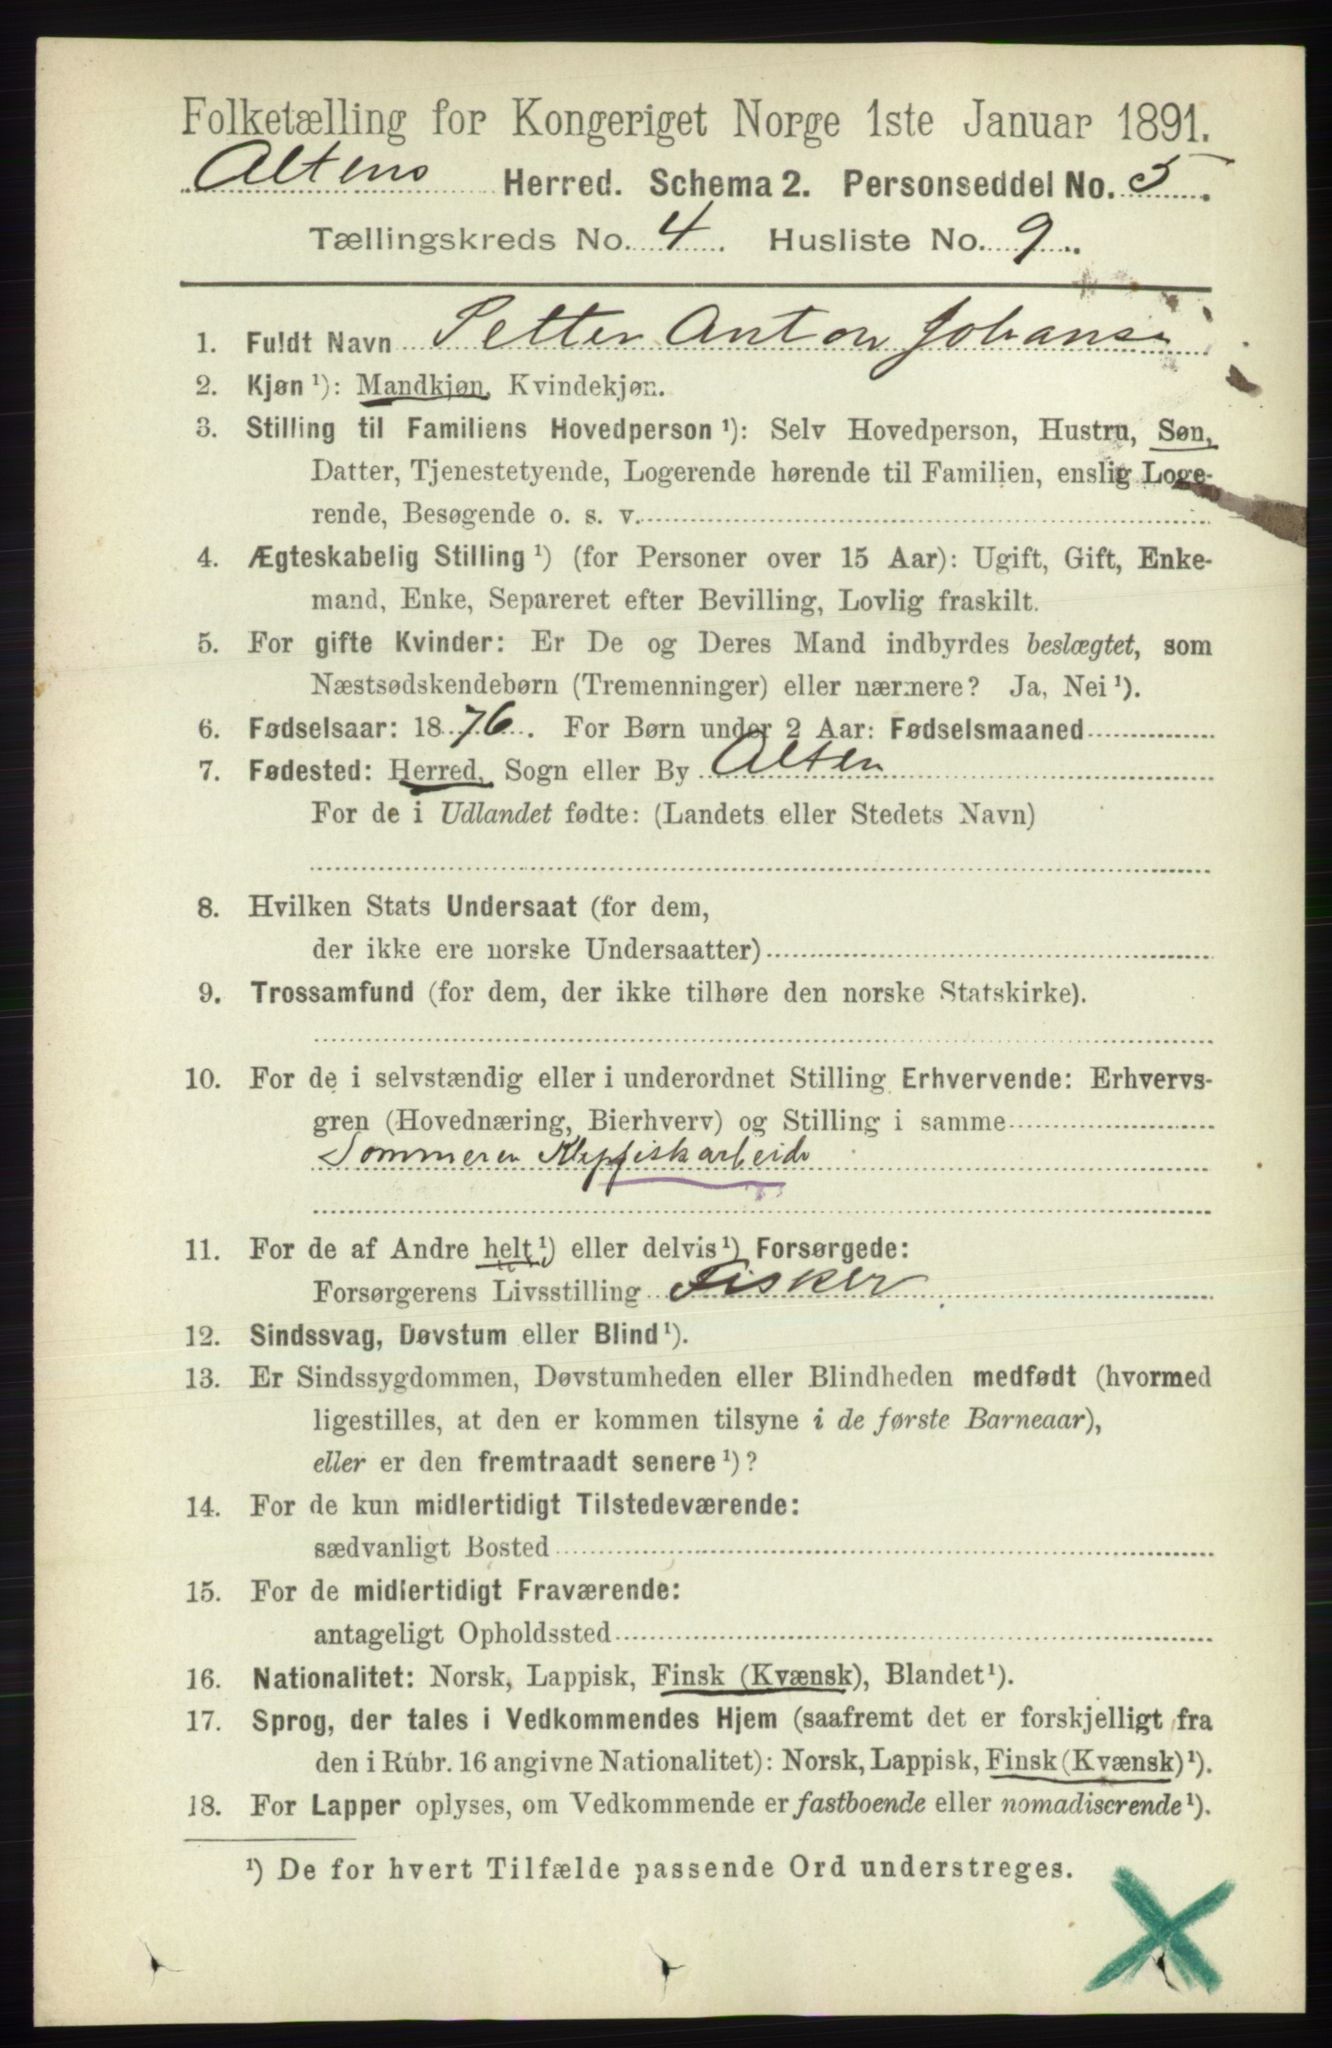 Folketælling for Kongeriget Norge 1ste Januar 1891.
Altens Herred. Schema 2. Personseddel No. 5.
Tællingskreds No. 4. Husliste No. 9.
1. Fuldt Navn Petter Anton Johans
2. Kjøn ¹): Mandkjøn, Kvindekjøn.
3. Stilling til Familiens Hovedperson ¹): Selv Hovedperson, Hustru, Søn,
Datter, Tjenestetyende, Logerende hørende til Familien, enslig Loge-
rende, Besøgende o. s. v.
4. Ægteskabelig Stilling ¹) (for Personer over 15 Aar): Ugift, Gift, Enke-
mand, Enke, Separeret efter Bevilling, Lovlig fraskilt.
5. For gifte Kvinder: Er De og Deres Mand indbyrdes beslægtet, som
Næstsødskendebørn (Tremenninger) eller nærmere? Ja, Nei ¹).
6. Fødselsaar: 1876. For Børn under 2 Aar: Fødselsmaaned
7. Fødested: Herred, Sogn eller By Alten
For de i Udlandet fødte: (Landets eller Stedets Navn)
8. Hvilken Stats Undersaat (for dem,
der ikke ere norske Undersaatter)
9. Trossamfund (for dem, der ikke tilhøre den norske Statskirke).
10. For de i selvstændig eller i underordnet Stilling Erhvervende: Erhvervs-
gren (Hovednæring, Bierhverv) og Stilling i samme
Sommeren Klepfiskarbeide
11. For de af Andre helt ¹) eller delvis ¹) Forsørgede:
Forsørgerens Livsstilling Fisker
12. Sindssvag, Døvstum eller Blind ¹).
13. Er Sindssygdommen, Døvstumheden eller Blindheden medfødt (hvormed
ligestilles, at den er kommen tilsyne i de første Barneaar),
eller er den fremtraadt senere ¹)?
14. For de kun midlertidigt Tilstedeværende:
sædvanligt Bosted
15. For de midlertidigt Fraværende:
antageligt Opholdssted
16. Nationalitet: Norsk, Lappisk, Finsk (Kvænsk), Blandet ¹).
17. Sprog, der tales i Vedkommendes Hjem (saafremt det er forskjelligt fra
den i Rubr. 16 angivne Nationalitet): Norsk, Lappisk, Finsk (Kvænsk) ¹).
18. For Lapper oplyses, om Vedkommende er fastboende eller nomadiserende ¹).
¹) De for hvert Tilfælde passende Ord understreges.